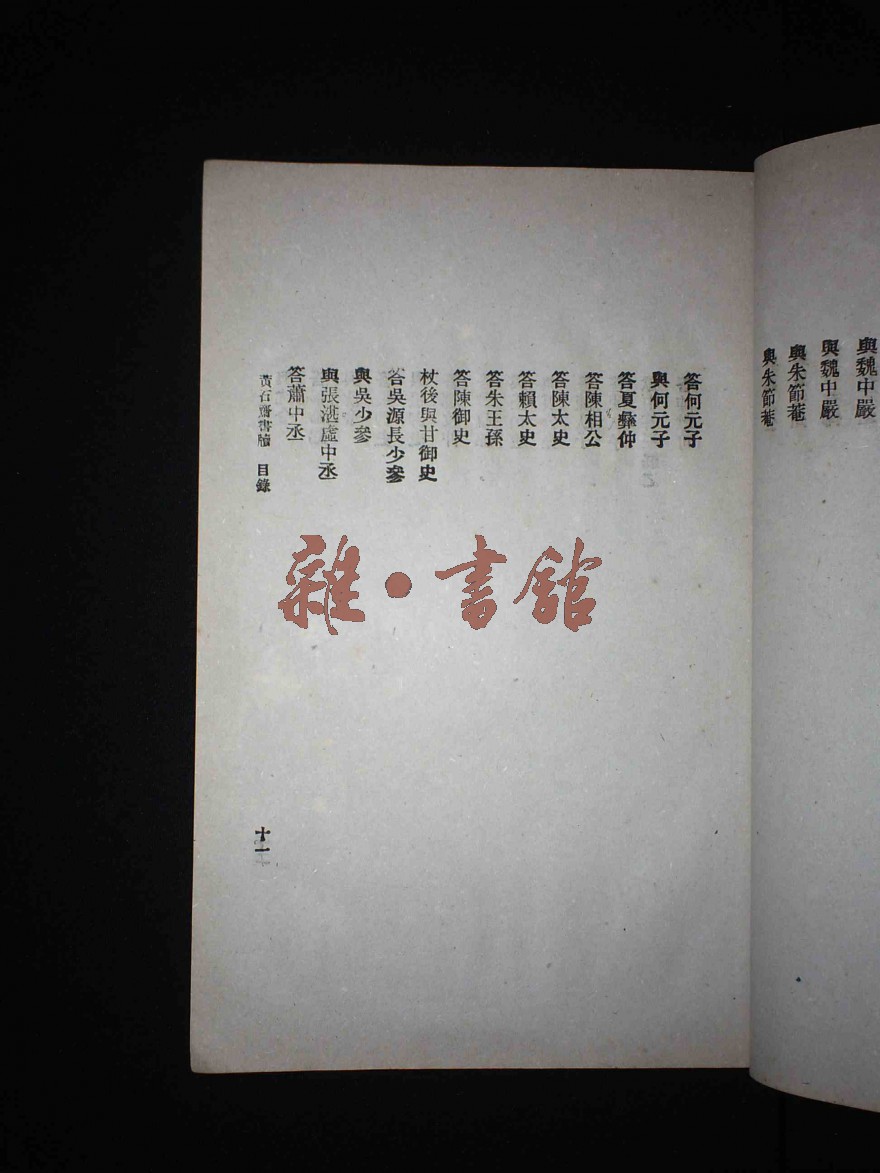 與魏中嚴
與魏中嚴
與朱節菴
與朱節菴
答何元子
與何元子
答夏彝仲
答陳相公
答陳太史
答賴太史
答朱王孫
答陳御史
杖後與甘御史
答吳源長少參
與吳少參
與張湛虛中丞
答蕭中丞
黃石齋書牘 目錄
十一
雜·書館